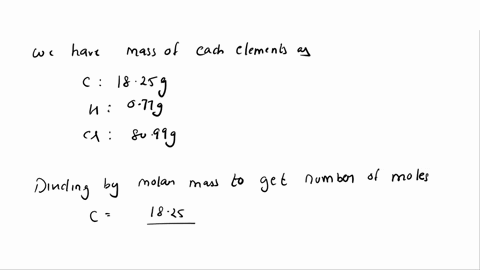 we have mass of each elements as
C : 18.25g
H : 0.77g
Cl : 80.99g
Dividing by molar mass to get number of moles
C = 18.25